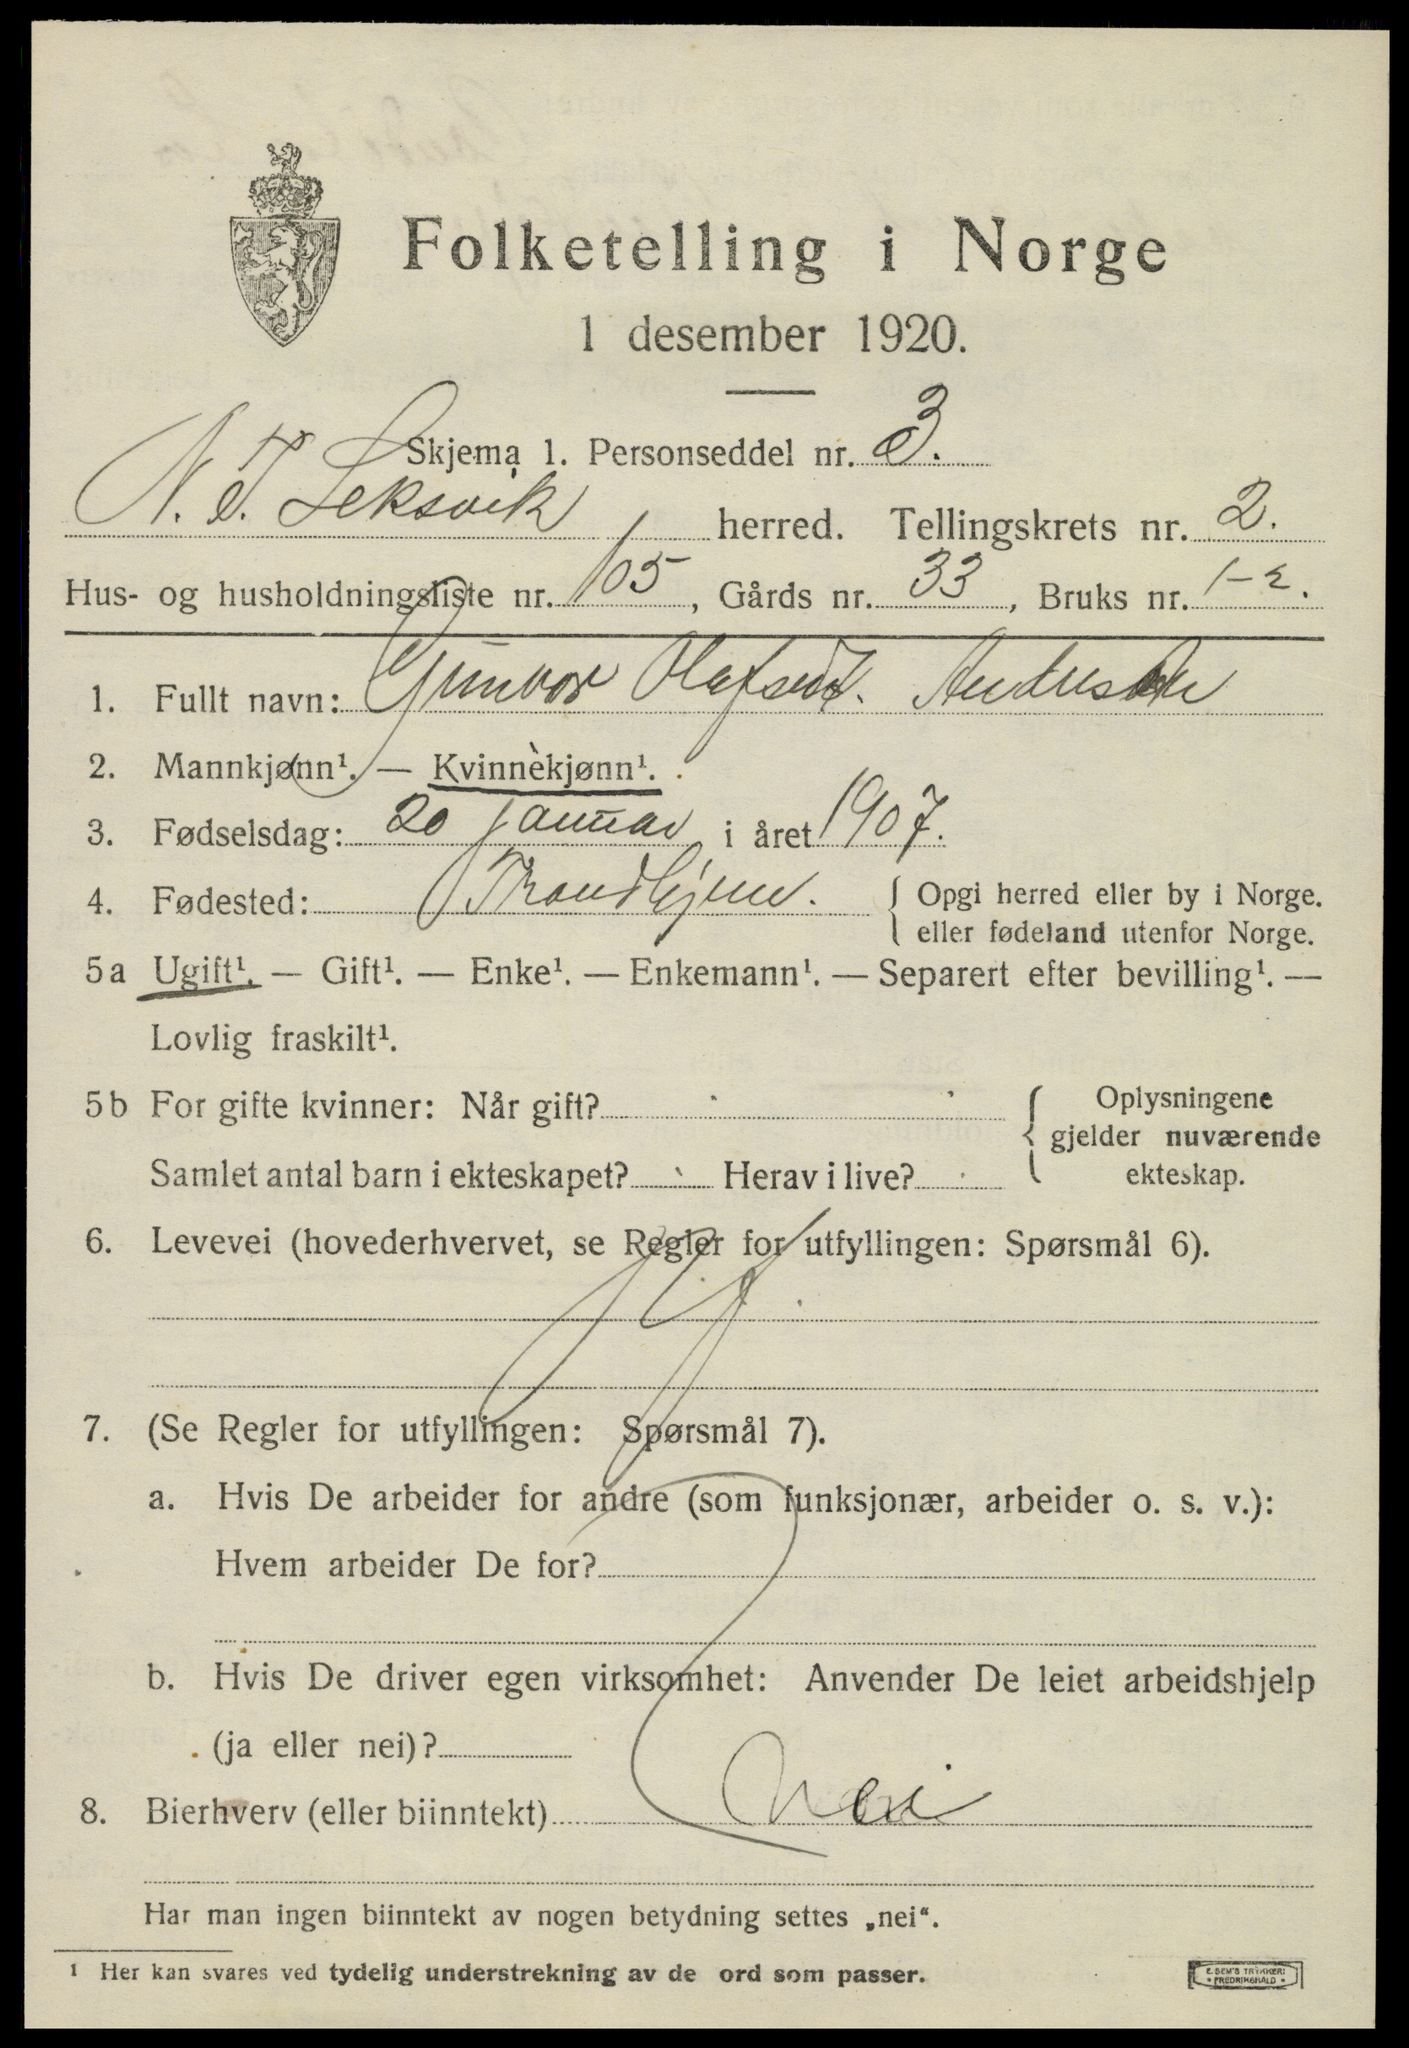 Folketelling i Norge
1 desember 1920.
Skjema 1. Personseddel nr. 3.
N. T. Leksvik herred. Tellingskrets nr. 2.
Hus- og husholdningsliste nr. 105, Gårds nr. 33, Bruks nr. 1-2.
1. Fullt navn: Gunvor Olafsdt.
2. Mannkjønn¹. — Kvinnekjønn¹.
3. Fødselsdag: 20 januar i året 1907.
4. Fødested: Trondhjem. { Opgi herred eller by i Norge.
eller fødeland utenfor Norge.
5a Ugift¹. — Gift¹. — Enke¹. — Enkemann¹. — Separert efter bevilling¹. —
Lovlig fraskilt¹.
5b For gifte kvinner: Når gift?
Samlet antal barn i ekteskapet? Herav i live?
Oplysningene
gjelder nuværende
ekteskap.
6. Levevei (hovederhvervet, se Regler for utfyllingen: Spørsmål 6).
7. (Se Regler for utfyllingen: Spørsmål 7).
a. Hvis De arbeider for andre (som funksjonær, arbeider o. s. v.):
Hvem arbeider De for?
b. Hvis De driver egen virksomhet: Anvender De leiet arbeidshjelp
(ja eller nei)?
8. Bierhverv (eller biinntekt) Nei
Har man ingen biinntekt av nogen betydning settes „nei“.
¹ Her kan svares ved tydelig understrekning av de ord som passer.
E. SEM'S TRYKKERI
FREDRIKSHALD